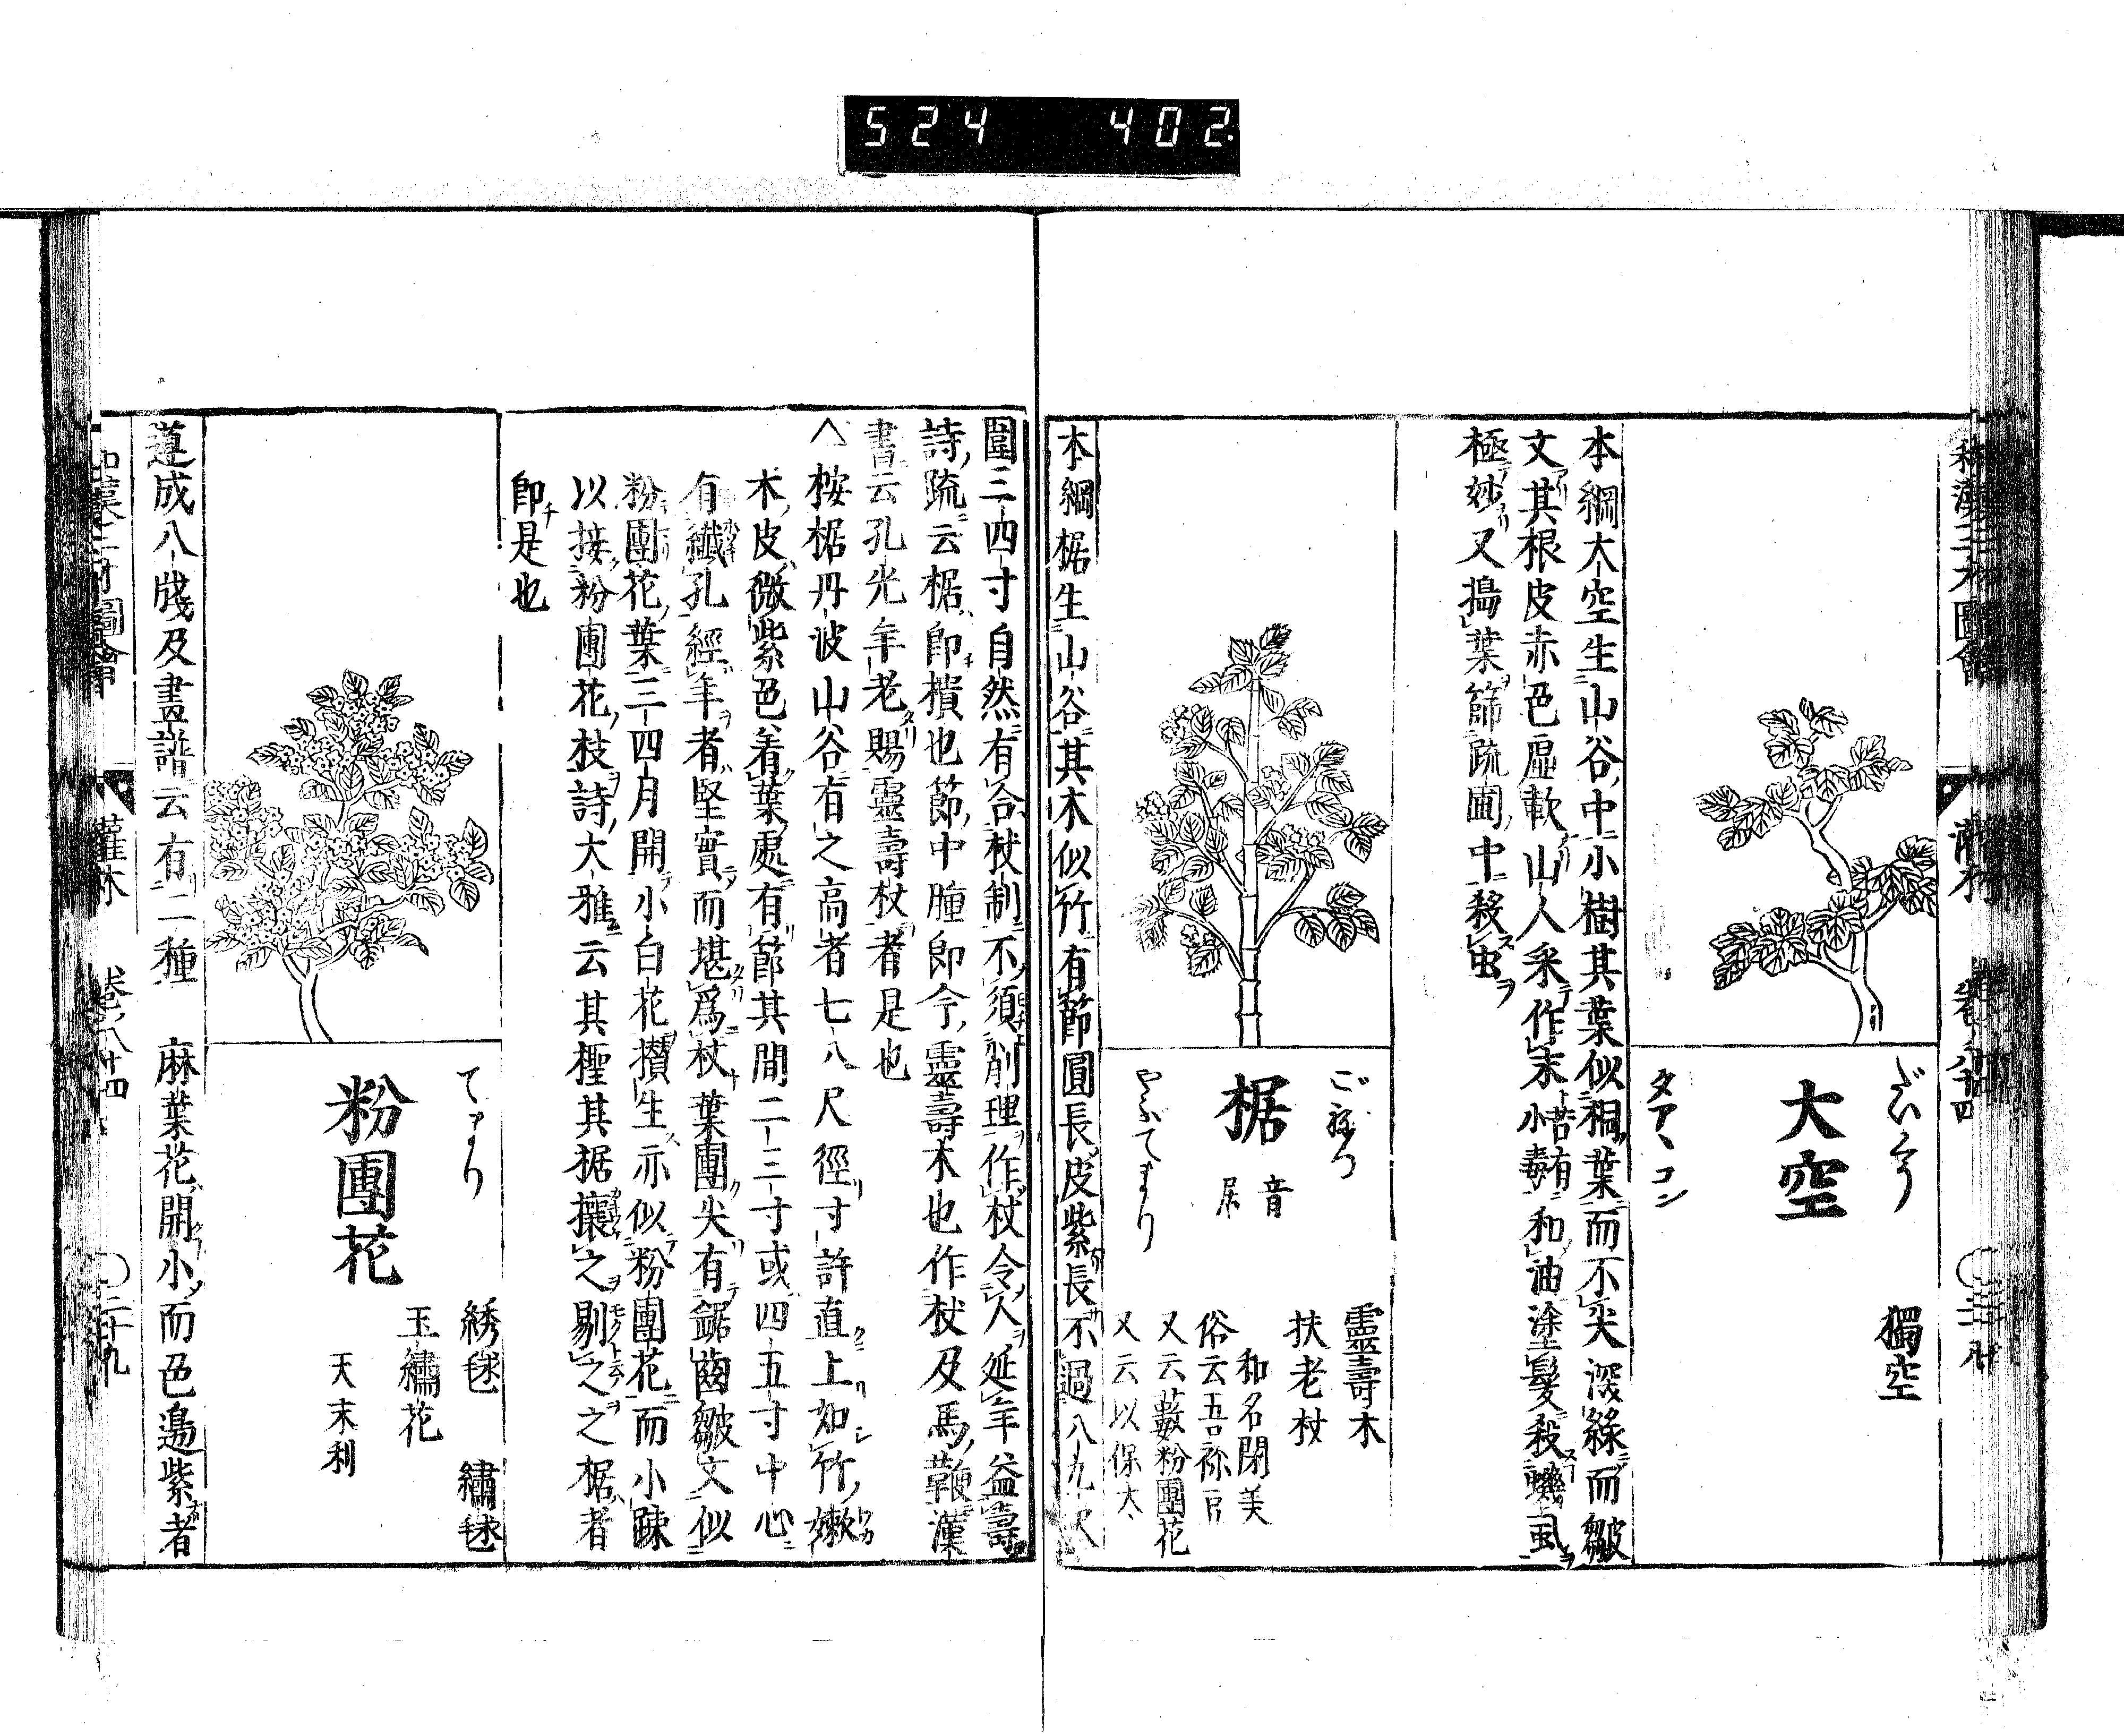 524 402
和漢三才圖會 灌木 卷ノ八十四 〇二十九
だいくう
大空
獨空
タアヽコン
本綱大空生山谷中小樹其葉似桐葉而不尖深緑而皺
文其根皮赤色虛軟山人采作末苦有小毒和油塗髮殺蟣虱
極妙又搗葉篩蔬圃中殺虫
椐
音居
やぶてまり
靈壽木
扶老杖
和名閉美
俗云吾祢
又云藪粉團花
又云以保太
本綱椐生山谷其木似竹有節圓長皮紫長不過八九尺
圍三四寸自然有合杖制不須削理作杖令人延年益壽
詩疏云椐即樻也節中腫即今靈壽木也作杖及馬鞭漢
書云孔光年老賜靈壽杖者是也
△按椐丹波山谷有之高者七八尺徑寸許直上如竹嫩
木皮微紫色着葉處有節其間二三寸或四五寸中心
有纖孔經年者堅實而堪爲杖葉團尖有鋸齒皺文似
粉團花葉三四月開小白花攢生亦似粉團花而小疎
以接粉團花枝詩大雅云其檉其椐攘之剔之之椐者
即是也
てまり
粉團花
綉毬 繡毬
玉繡花
天末利
遵成八牋及畫譜云有二種 麻葉花開小而色邉紫者
和漢三才圖會 灌木 卷ノ八十四 〇二十九